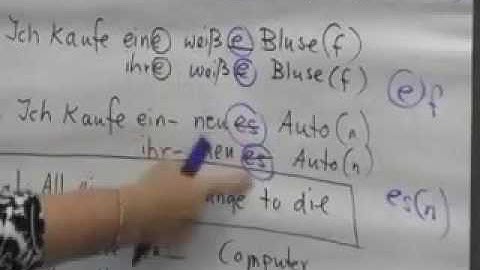 Ich kaufe eine weiße Bluse (f)
ihre weiße Bluse (f)
e f
Ich kaufe ein- neues Auto (n)
ihr- neues Auto (n)
es (n)
All
ange to die
Computer